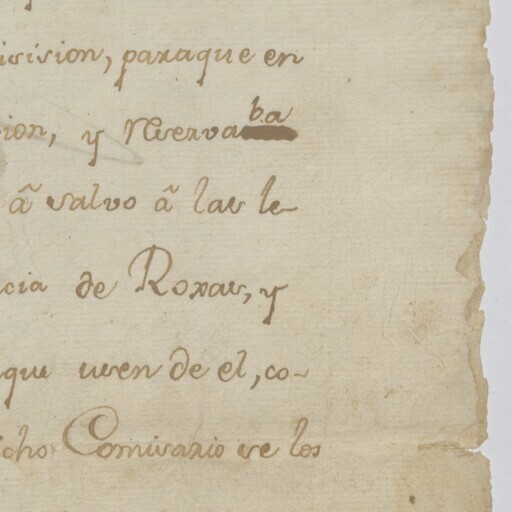 icision, paraque en
cion, y reservaba
â salvo â las le
cia de Roxas, y
que usen de el, co-
cho Comisario se los